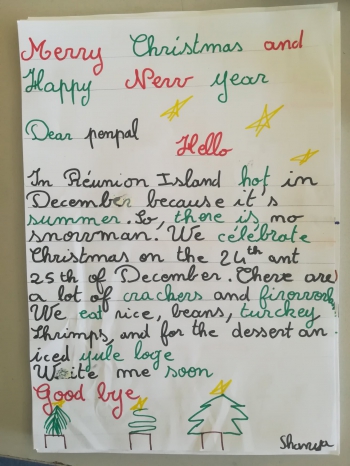 Merry Christmas and
Happy New year
Dear penpal
Hello
In Réunion Island hot in
December because it's
summer. So, there is no
snowman. We célébrate
Christmas on the 24th ant
25th of December. There are
a lot of crackers and firework
We eat rice, beans, turckey
Shrimps, and for the dessert an
iced yule loge
Write me soon
Good bye